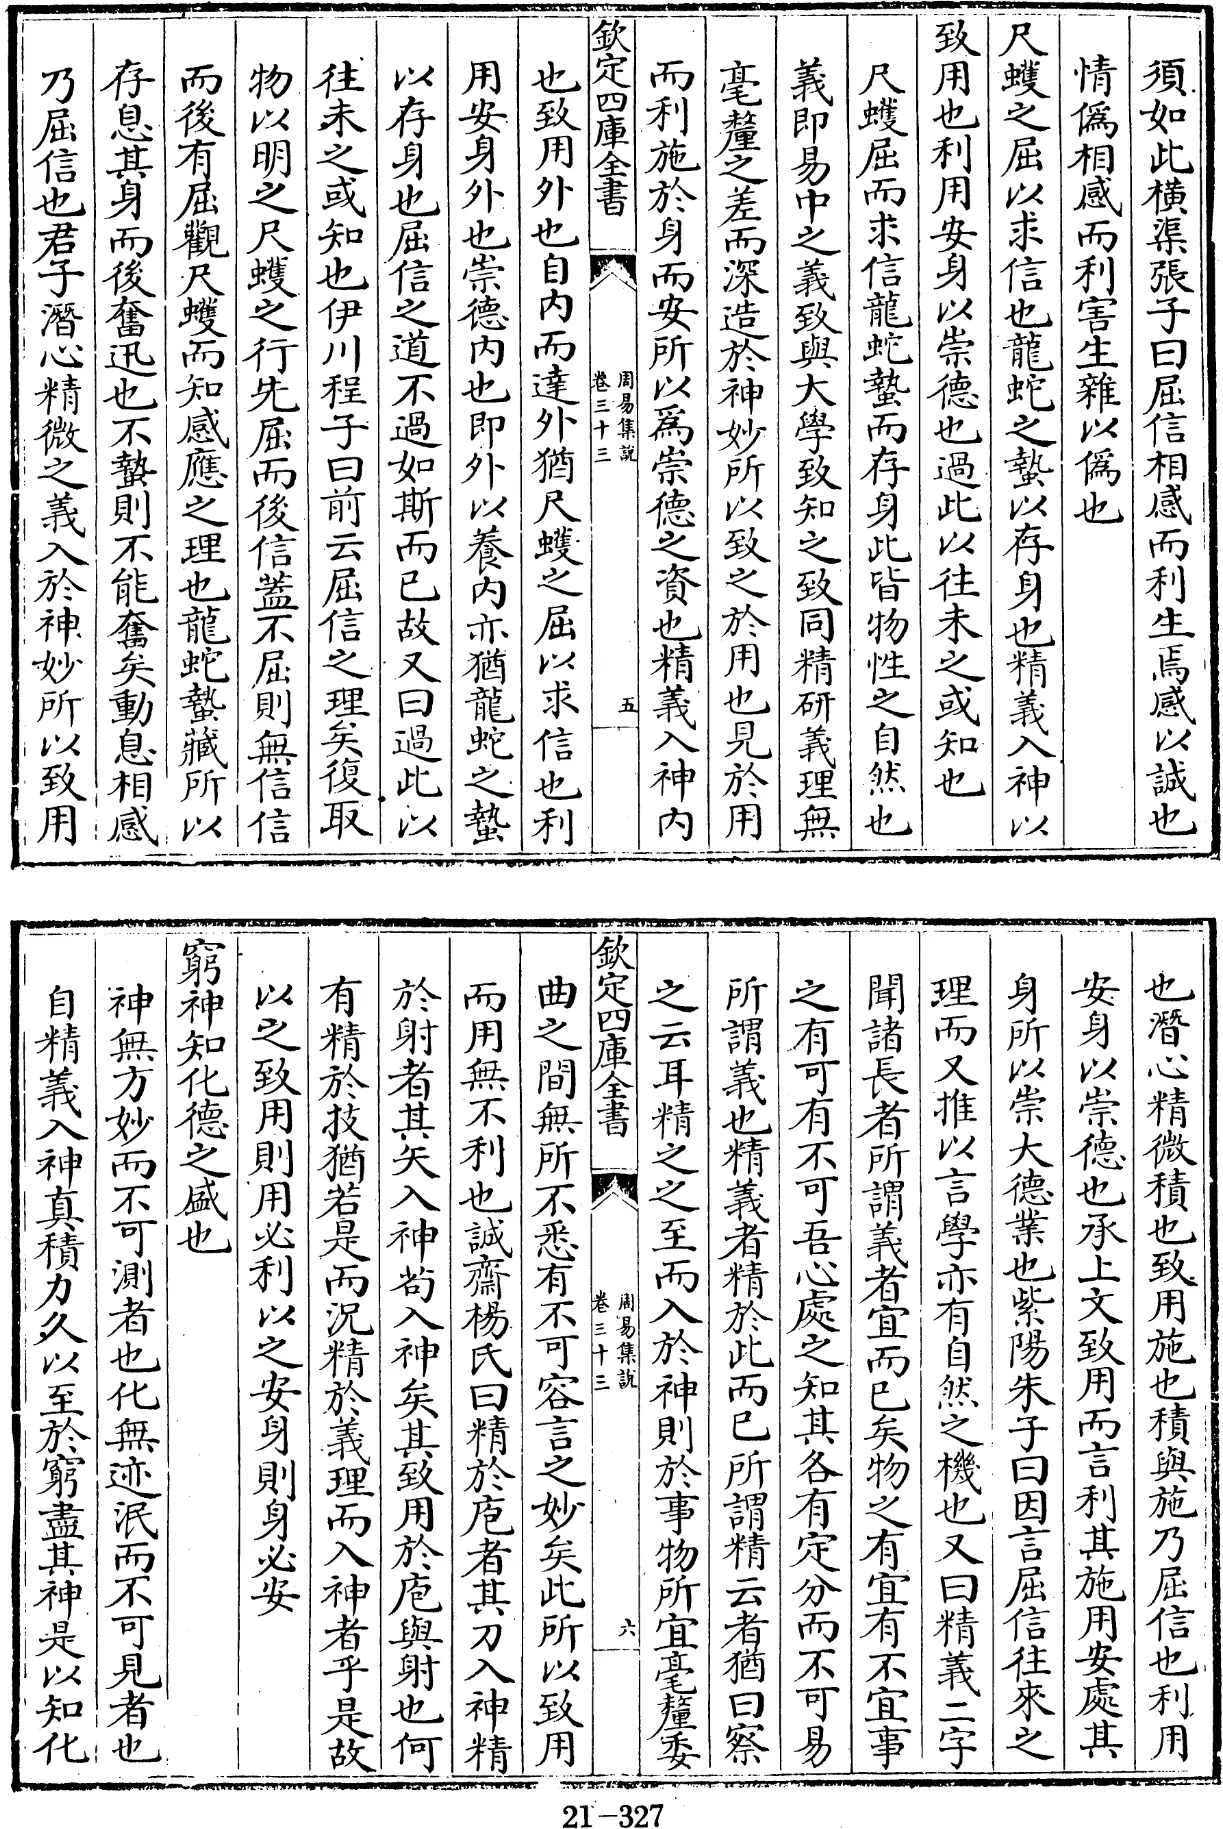 須如此橫渠張子曰屈信相感而利生焉感以誠也
情偽相感而利害生雜以偽也
尺蠖之屈以求信也龍蛇之蟄以存身也精義入神以
致用也利用安身以崇德也過此以往未之或知也
尺蠖屈而求信龍蛇蟄而存身此皆物性之自然也
義即易中之義致與大學致知之致同精研義理無
毫釐之差而深造於神妙所以致之於用也見於用
而利施於身而安所以為崇德之資也精義入神内
欽定四庫全書
周易集說
卷三十三
五
也致用外也自内而達外猶尺蠖之屈以求信也利
用安身外也崇德内也即外以養内亦猶龍蛇之蟄
以存身也屈信之道不過如斯而已故又曰過此以
往未之或知也伊川程子曰前云屈信之理矣復取
物以明之尺蠖之行先屈而後信蓋不屈則無信信
而後有屈觀尺蠖而知感應之理也龍蛇蟄藏所以
存息其身而後奮迅也不蟄則不能奮矣動息相感
乃屈信也君子潛心精微之義入於神妙所以致用
也潛心精微積也致用施也積與施乃屈信也利用
安身以崇德也承上文致用而言利其施用安處其
身所以崇大德業也紫陽朱子曰因言屈信往來之
理而又推以言學亦有自然之機也又曰精義二字
聞諸長者所謂義者宜而已矣物之有宜有不宜事
之有可有不可吾心處之知其各有定分而不可易
所謂義也精義者精於此而已所謂精云者猶曰察
之云耳精之之至而入於神則於事物所宜毫釐委
欽定四庫全書
周易集說
卷三十三
六
曲之間無所不悉有不可容言之妙矣此所以致用
而用無不利也誠齋楊氏曰精於庖者其刀入神精
於射者其矢入神茍入神矣其致用於庖與射也何
有精於技猶若是而況精於義理而入神者乎是故
以之致用則用必利以之安身則身必安
窮神知化德之盛也
神無方妙而不可測者也化無迹泯而不可見者也
自精義入神真積力久以至於窮盡其神是以知化
21-327